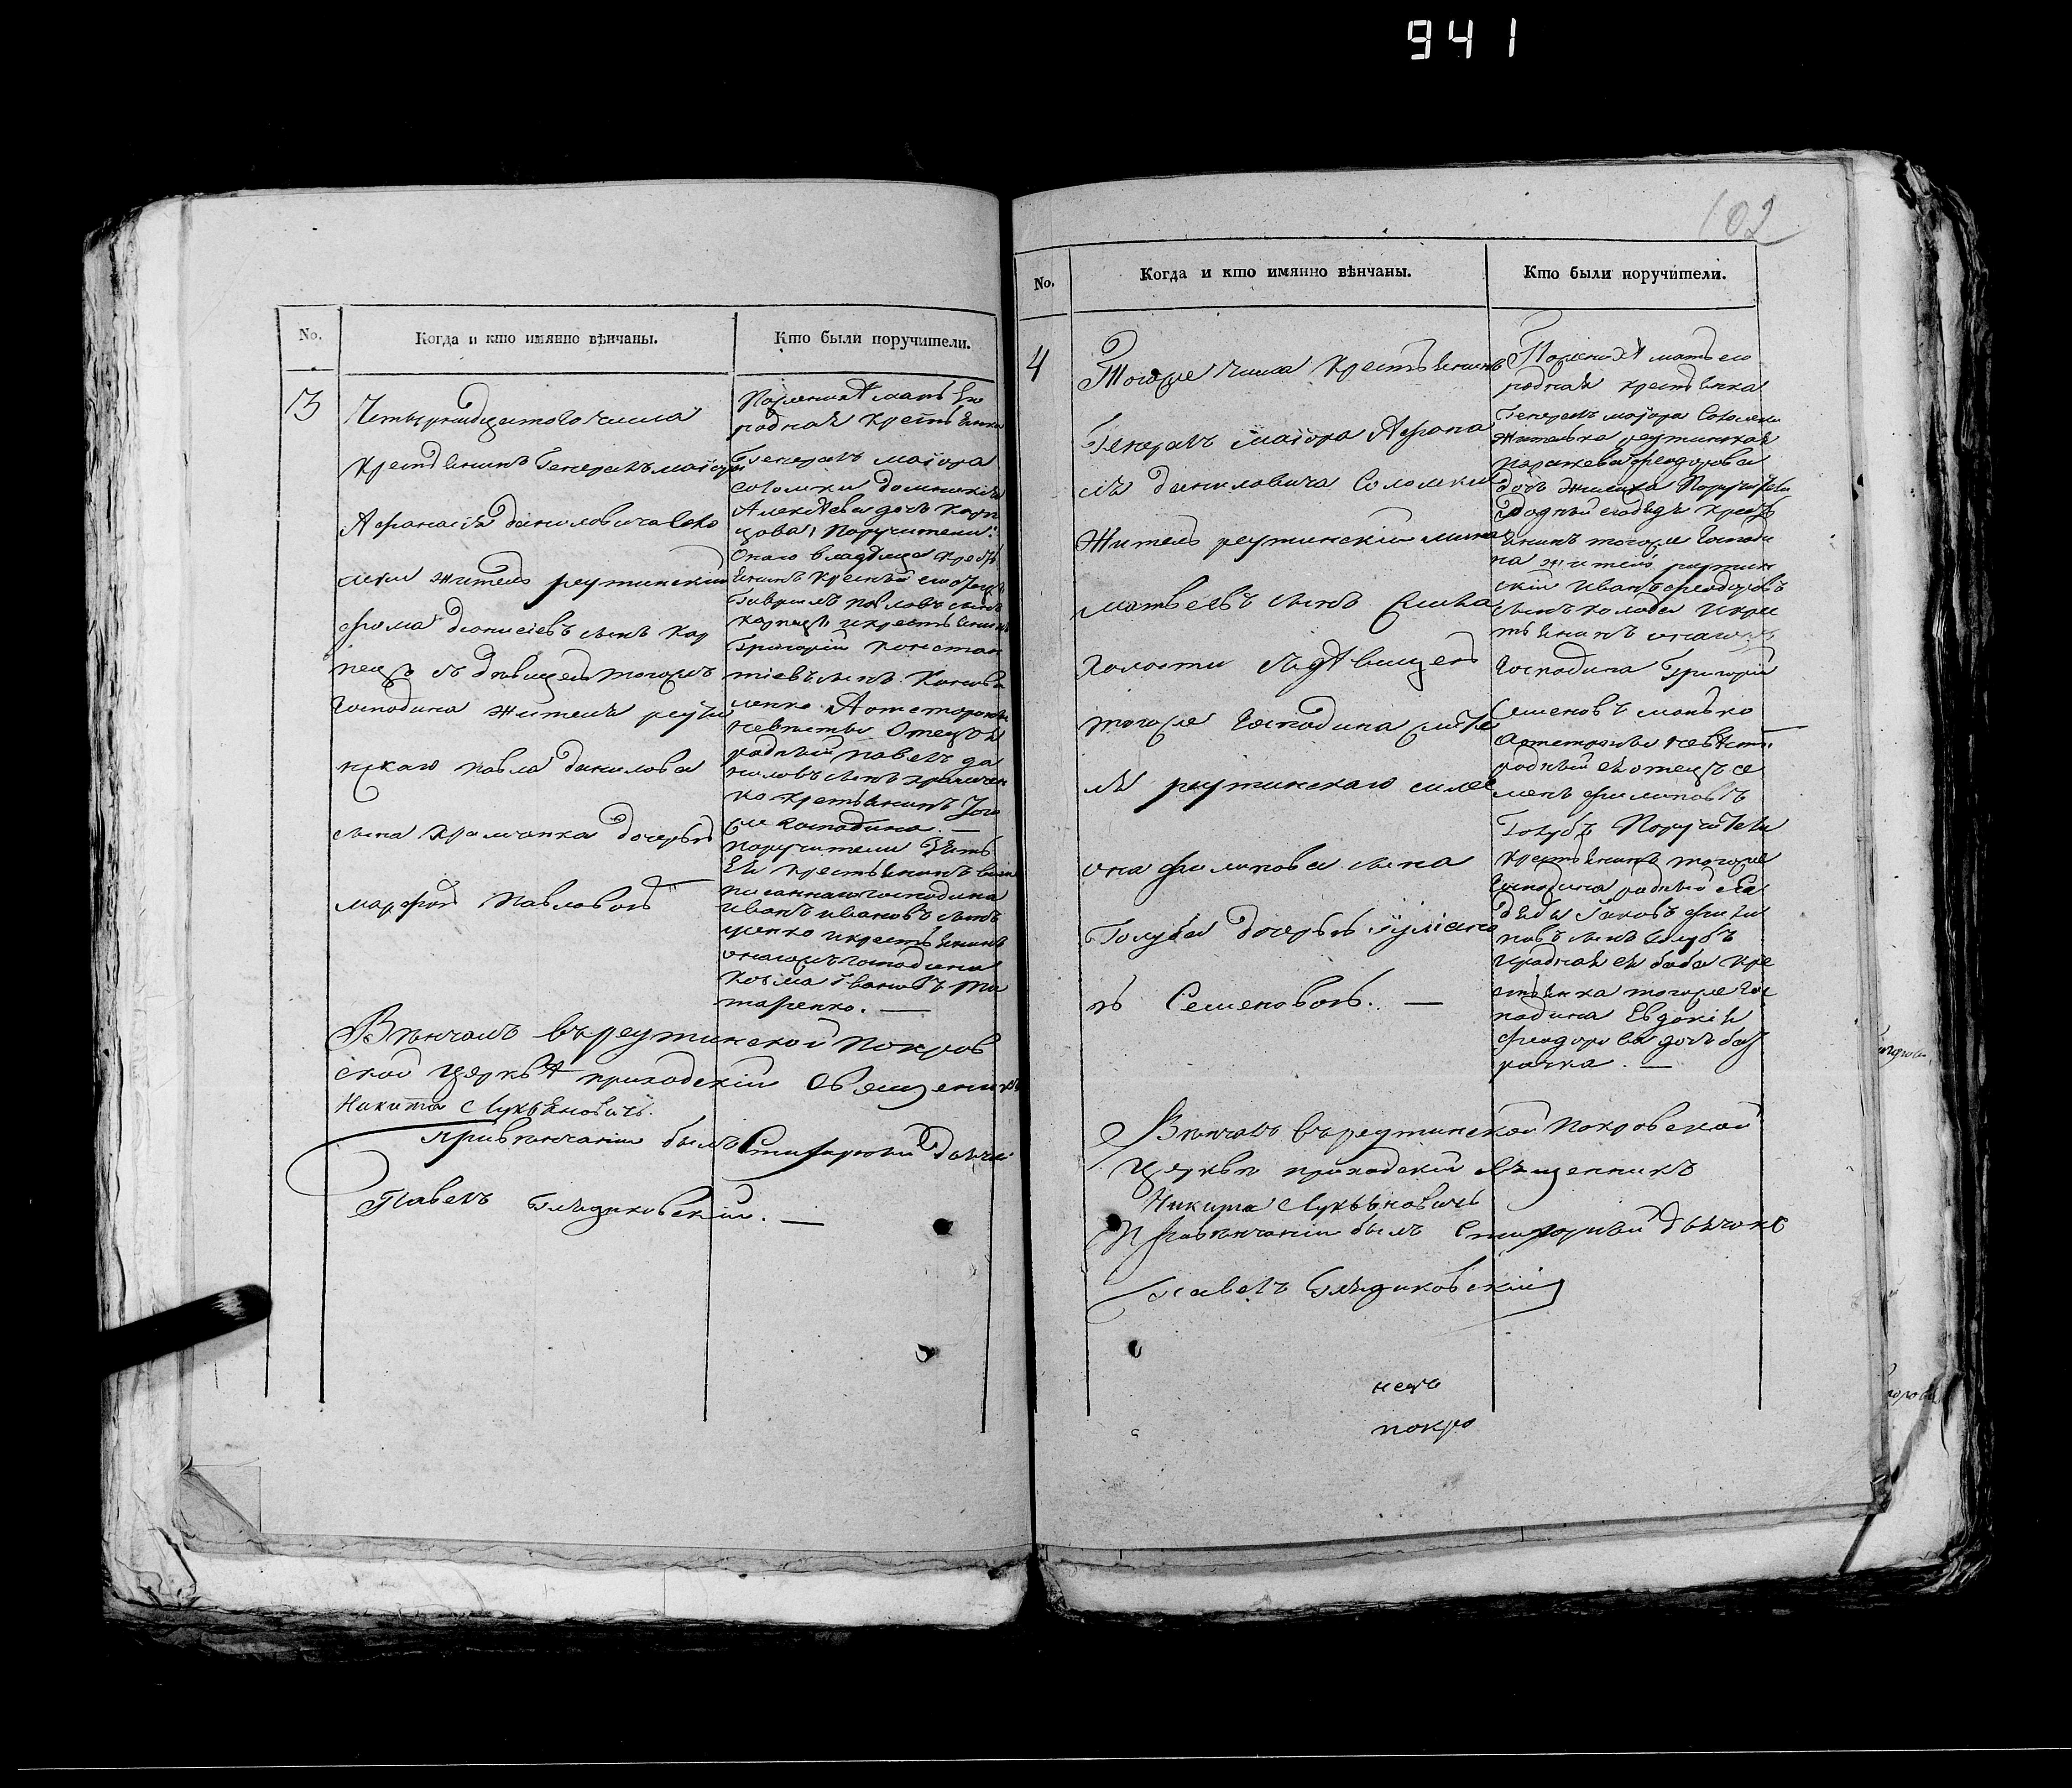 941
No.
Когда и кто имянно вѣнчаны.
Кто были поручители.
3
Четырнадцатого числа
крестьянинъ Генералъ маіора
Афанасія Даниловича Соло
мки житель реутинскій
Фома Діонисіевъ сынъ Кор
пецъ з дѣвицею тогожъ
Господина жителя реути
нскаго Павла Данилова
сына Храмченка дочерью
Марфою Павловою
Поженихѣ мать Его
родная Крестьянка
Генералъ маіора
Соломки Домникія
Алексѣева дочь Корп
цова, Поручители:
Оного владѣльца крестьян
янинъ крестный его отецъ
Гавріилъ Павловъ сынъ
Корпецъ и крестьянинъ
Григорій Констан
тіевъ сынъ Коново
ленко. А от стороны
невѣсты Отецъ Ея
родный Павелъ Да
ниловъ сынъ Храмчен
ко крестьянинъ того
жъ Господина. —
поручители зять
Ея крестьянинъ выше
писаннаго господина
Иванъ Ивановъ сынъ
ценко и крестьянинъ
оногожъ господина
Косма Ивановъ Ти
таренко. —
Вѣнчалъ въ реутинской Покров
ской Церквѣ приходскій Священникъ
Никита Лукьяновичъ.
При вѣнчаніи былъ Стихарный Дьячокъ
Павелъ Блядиковскій. —
102
No.
Когда и кто имянно вѣнчаны.
Кто были поручители.
4
Тогоже числа Крестьянинъ
Генералъ маіора Афана
сія Даниловича Соломки
Житель реутинскій
Матвѣевъ сынъ
Холостий з дѣвицею
тогоже Господина жите
ля реутинскаго Симе
она Филипова сына
Голуба дочерью Іуліано
ю Семеновою. —
Поженихѣ мать его
родная крестьянка
Генералъ маіора Соломки
жителька реутинская
Параскевія Феодорова
дочь Поручители
родный его дядя крестья
янинъ тогоже Господи
на житель реутин
скій Иванъ Феодоровъ
сынъ Колода и крес
тьянинъ оногожъ
Господина Григорій
Семеновъ Манько
А от стороны невѣсты
родный ея отецъ Се
менъ Филиповъ
Голубъ Поручители
крестьянинъ тогоже
Господина родный Ея
дядя Іаковъ Фили
повъ сынъ Голубъ
и родная ея баба кре
стьянка тогоже Гос
подина Евдокія
Феодорова дочь
Вѣнчалъ въ реутинской Покровской
Церкви приходскій Священникъ
Никита Лукьяновичъ
При вѣнчаніи былъ Стихарный Дьячокъ
Павелъ Блядиковскій
покро